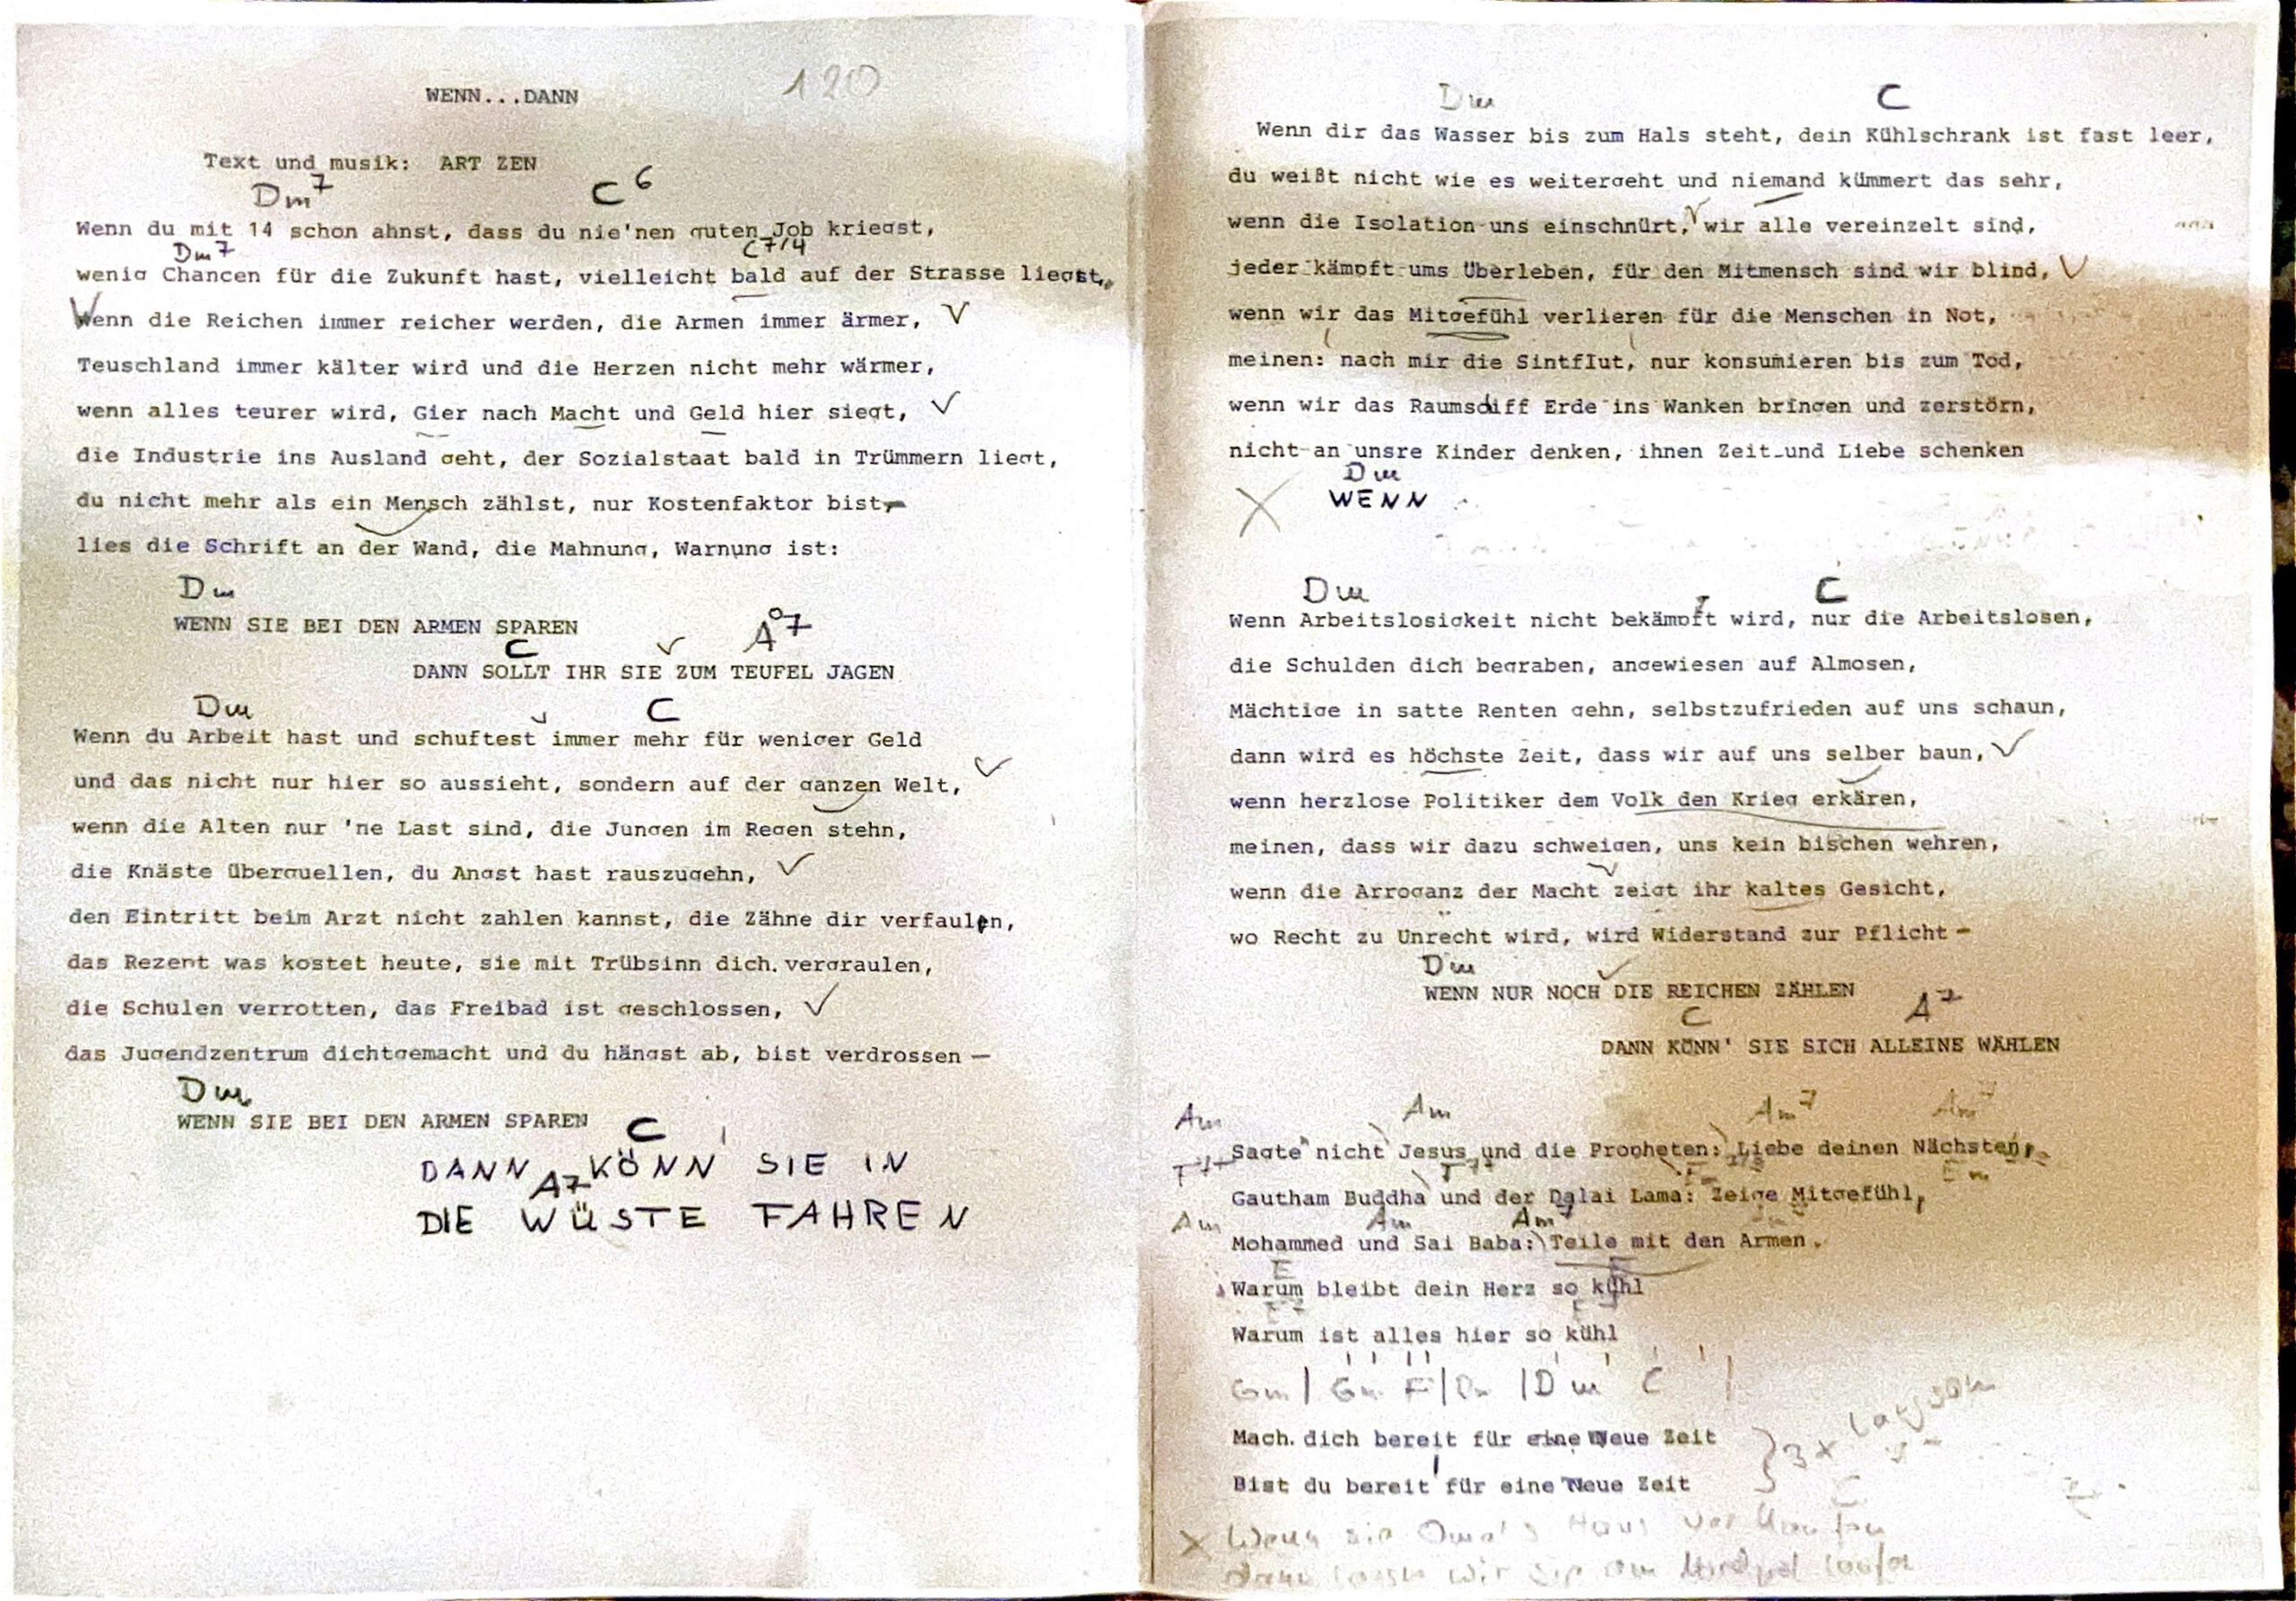 WENN...DANN 120
Text und musik: ART ZEN
Dm7 C6
Wenn du mit 14 schon ahnst, dass du nie'nen guten Job kriegst,
Dm7 C7/4
wenig Chancen für die Zukunft hast, vielleicht bald auf der Strasse liegst,
Wenn die Reichen immer reicher werden, die Armen immer ärmer,
Teuschland immer kälter wird und die Herzen nicht mehr wärmer,
wenn alles teurer wird, Gier nach Macht und Geld hier siegt,
die Industrie ins Ausland geht, der Sozialstaat bald in Trümmern liegt,
du nicht mehr als ein Mensch zählst, nur Kostenfaktor bist,
lies die Schrift an der Wand, die Mahnung, Warnung ist:
Dm
WENN SIE BEI DEN ARMEN SPAREN
C A°7
DANN SOLLT IHR SIE ZUM TEUFEL JAGEN
Dm C
Wenn du Arbeit hast und schuftest immer mehr für weniger Geld
und das nicht nur hier so aussieht, sondern auf der ganzen Welt,
wenn die Alten nur 'ne Last sind, die Jungen im Regen stehn,
die Knäste überquellen, du Angst hast rauszugehn,
den Eintritt beim Arzt nicht zahlen kannst, die Zähne dir verfaulen,
das Rezept was kostet heute, sie mit Trübsinn dich vergraulen,
die Schulen verrotten, das Freibad ist geschlossen,
das Jugendzentrum dichtgemacht und du hängst ab, bist verdrossen —
Dm
WENN SIE BEI DEN ARMEN SPAREN
C
DANN KÖNN' SIE IN
A7
DIE WÜSTE FAHREN
Dm C
Wenn dir das Wasser bis zum Hals steht, dein Kühlschrank ist fast leer,
du weißt nicht wie es weitergeht und niemand kümmert das sehr,
wenn die Isolation uns einschnürt, wir alle vereinzelt sind,
jeder kämpft ums Überleben, für den Mitmensch sind wir blind,
wenn wir das Mitgefühl verlieren für die Menschen in Not,
meinen: nach mir die Sintflut, nur konsumieren bis zum Tod,
wenn wir das Raumschiff Erde ins Wanken bringen und zerstörn,
nicht an unsre Kinder denken, ihnen Zeit und Liebe schenken
Dm
WENN
Dm C
Wenn Arbeitslosigkeit nicht bekämpft wird, nur die Arbeitslosen,
die Schulden dich begraben, angewiesen auf Almosen,
Mächtige in satte Renten gehn, selbstzufrieden auf uns schaun,
dann wird es höchste Zeit, dass wir auf uns selber baun,
wenn herzlose Politiker dem Volk den Krieg erkären,
meinen, dass wir dazu schweigen, uns kein bischen wehren,
wenn die Arroganz der Macht zeigt ihr kaltes Gesicht,
wo Recht zu Unrecht wird, wird Widerstand zur Pflicht -
Dm
WENN NUR NOCH DIE REICHEN ZÄHLEN
C A7
DANN KÖNN' SIE SICH ALLEINE WÄHLEN
Am Am Am7 Am7
Sagte nicht Jesus und die Propheten: Liebe deinen Nächsten,
Em
Gautham Buddha und der Dalai Lama: Zeige Mitgefühl,
Am Am Am7
Mohammed und Sai Baba: Teile mit den Armen.
E E
Warum bleibt dein Herz so kühl
Warum ist alles hier so kühl
Gm | Gm F | Dm | Dm C |
Mach dich bereit für eine Neue Zeit
Bist du bereit für eine Neue Zeit
3x langsam
Wenn sie Oma's Haus verkaufen
dann lassen wir sie am